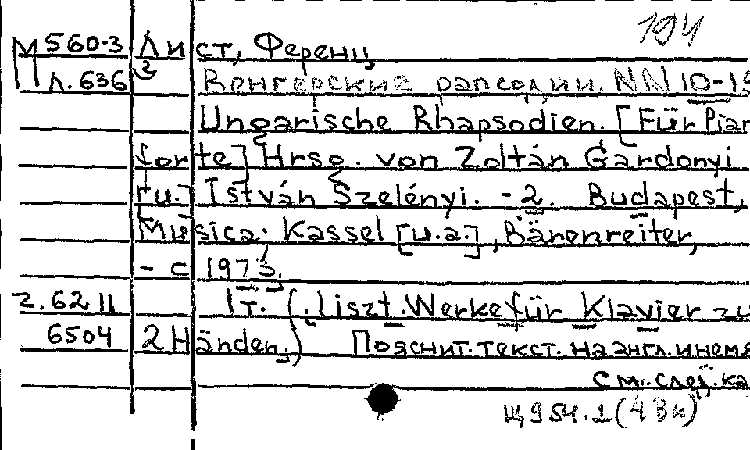 194
М 560-3 Лист, Ференц
Л. 636 3 Венгерские рапсодии. NN 10-15
Ungarische Rhapsodien. [Für Pian
forte] Hrsg. von Zoltán Gárdonyi
[u.] István Szelényi. - 2. Budapest,
Musica; Kassel [u.a.], Bärenreiter,
- c 1973.
2.62 II 1т. (Liszt. Werke für Klavier zu
6504 2 Händen.) Пояснит. текст. на англ. и нем
См. след. ка
Ц954.2